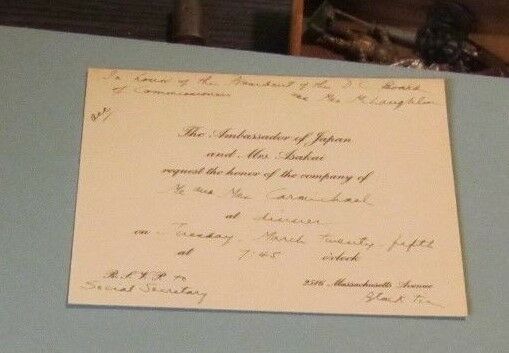 In honor of the President of the D.C. Board
of Commissioners and Mrs McLaughlin
acc
The Ambassador of Japan
and Mrs. Asakai
request the honor of the company of
Mr and Mrs Carmichael
at dinner
on Tuesday, March twenty-fifth
at 7:45 o'clock
R.S.V.P. to
Social Secretary
2516 Massachusetts Avenue
Black Tie